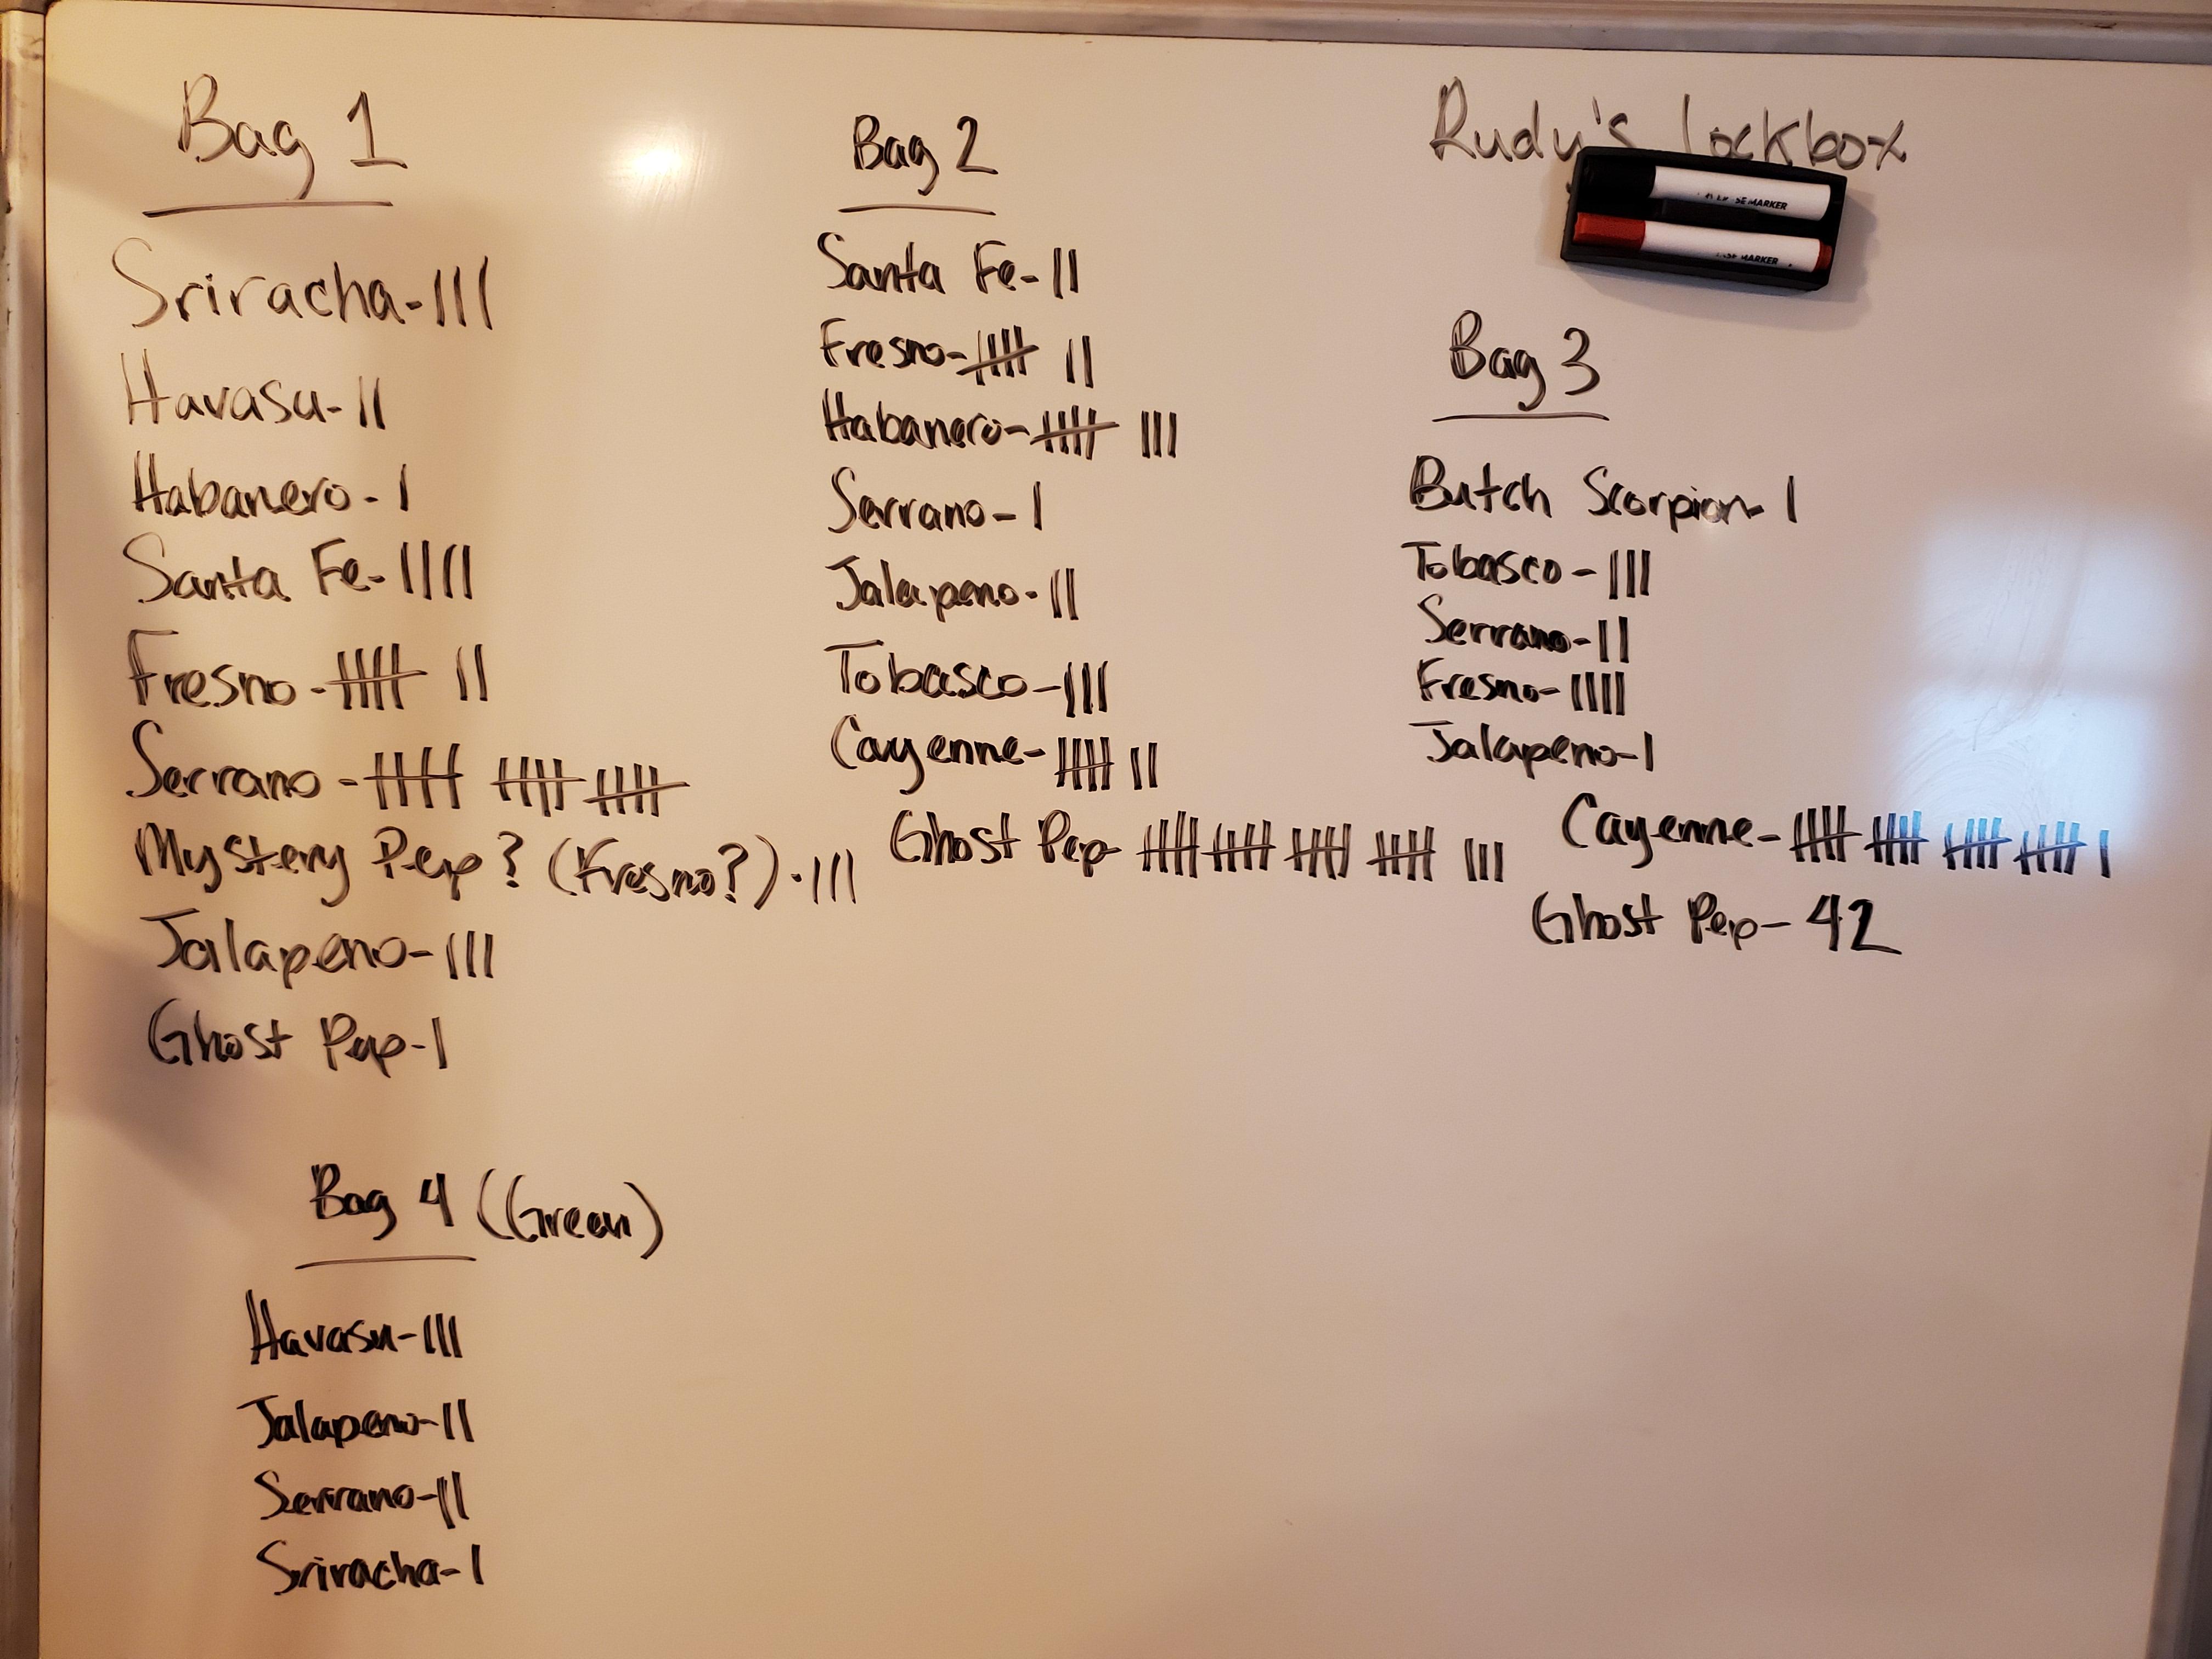 Bag 1
Sriracha-III
Havasu-II
Habanero-I
Santa Fe-IIII
Fresno-卌 II
Serrano-卌 卌 卌
Mystery Pep? (Fresno?)-III
Jalapeno-III
Ghost Pep-I
Bag 2
Santa Fe-II
Fresno-卌 II
Habanero-卌 III
Serrano-I
Jalapeno-II
Tobasco-III
Cayenne-卌 II
Ghost Pep-卌 卌 卌 卌 III
Rudy's Lockbox
MARKER
MARKER
Bag 3
Butch Scorpion-I
Tobasco-III
Serrano-II
Fresno-IIII
Jalapeno-I
Cayenne-卌 卌 卌 卌 I
Ghost Pep-42
Bag 4 (Green)
Havasu-III
Jalapeno-II
Serrano-II
Sriracha-I